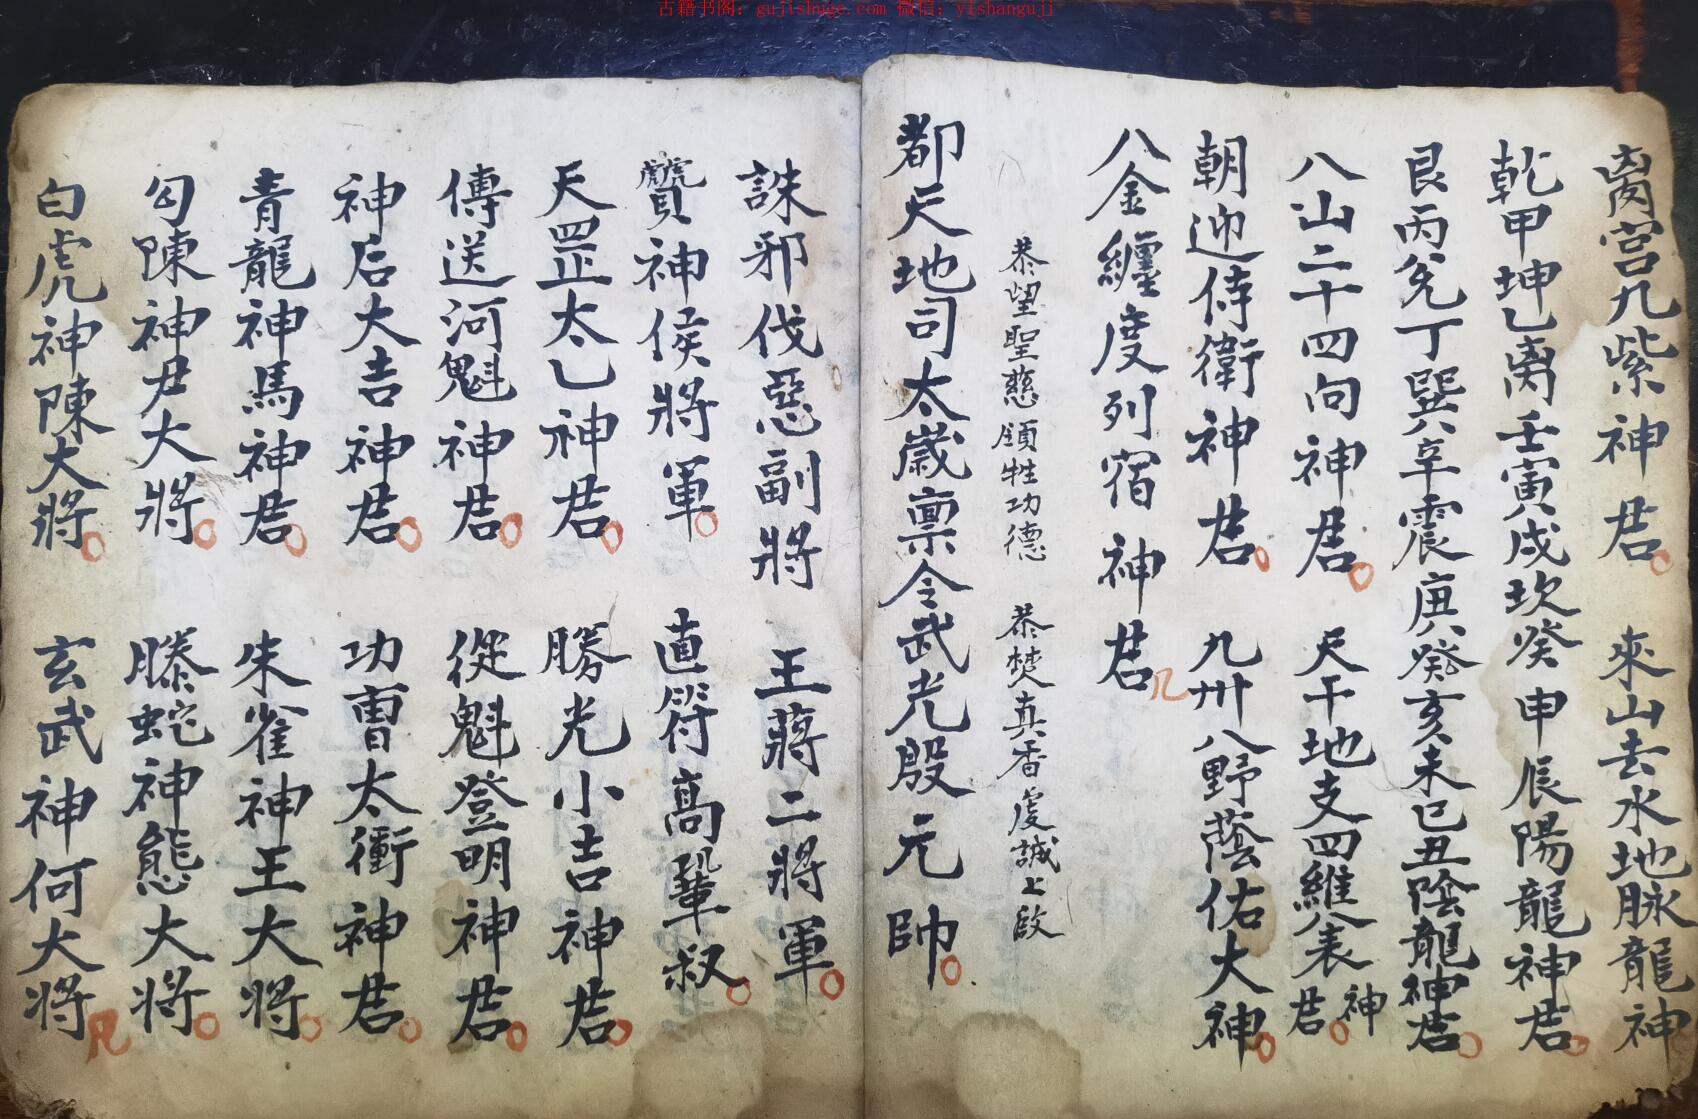 古籍书阁：gujishuge.com 微信：yishanguji
离宫九紫神君 來山去水地脉龍神
乾甲坤乙离壬寅戌坎癸申辰陽龍神君
艮丙兌丁巽辛震庚癸亥未巳丑陰龍神君
八山二十四向神君 天干地支四維八表神君
朝迎侍衛神君 九州八野蔭佑大神
八金纏度列宿神君
恭望聖慈領牲功德 恭焚真香虔誠上啟
都天地司太歲禀令武光殷元帥
誅邪伐惡副將 王蔣二將軍
贙神侯將軍 直符高鞏叔
天罡太乙神君 勝光小吉神君
傳送河魁神君 從魁登明神君
神后太吉神君 功曹太衝神君
青龍神馬神君 朱雀神王大将
勾陳神尹大將 滕蛇神熊大将
白虎神陳大將 玄武神何大将